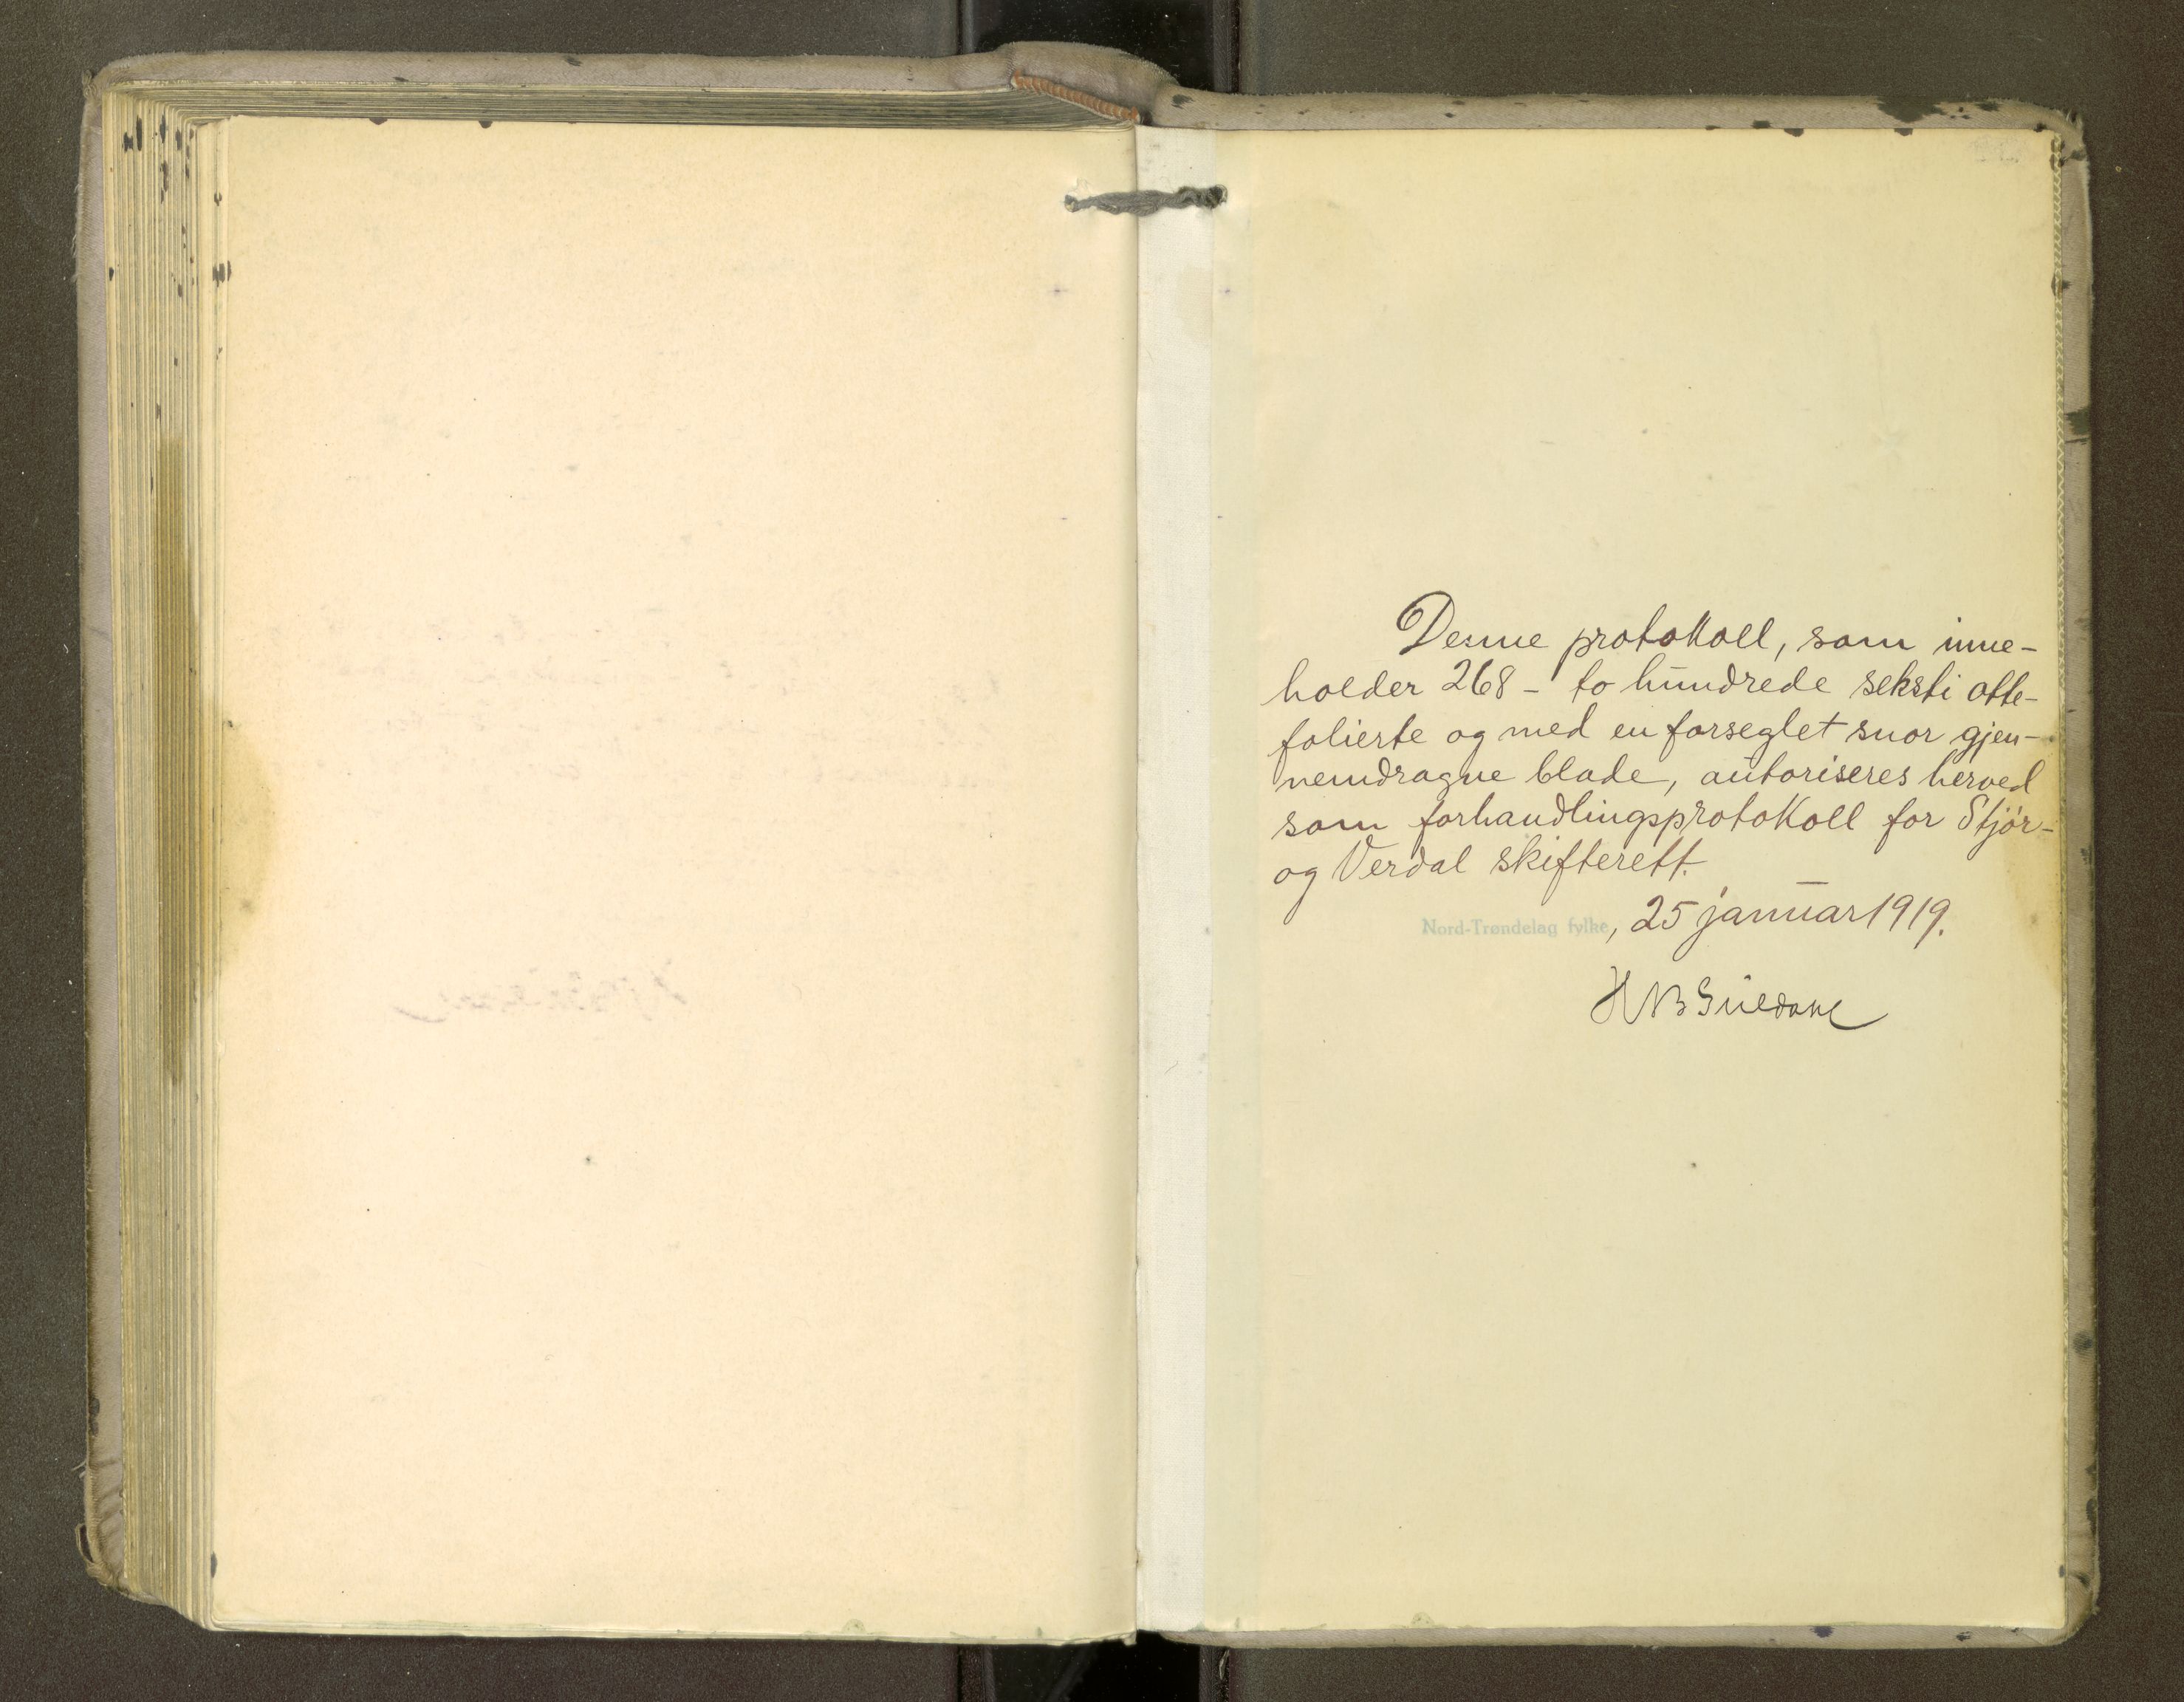 Denne protokoll, som inne-
holder 268 - to hundrede seksti otte-
folierte og med en forseglet snor gjen-
nemdragne blade, autoriseres herved
som forhandlingsprotokoll for Stjør-
og Verdal skifterett.
Nord-Trøndelag fylke, 25 januar 1919.